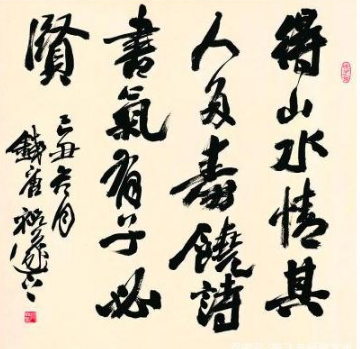 得山水情其
人多寿饒詩
書氣有子必
賢
己丑六月